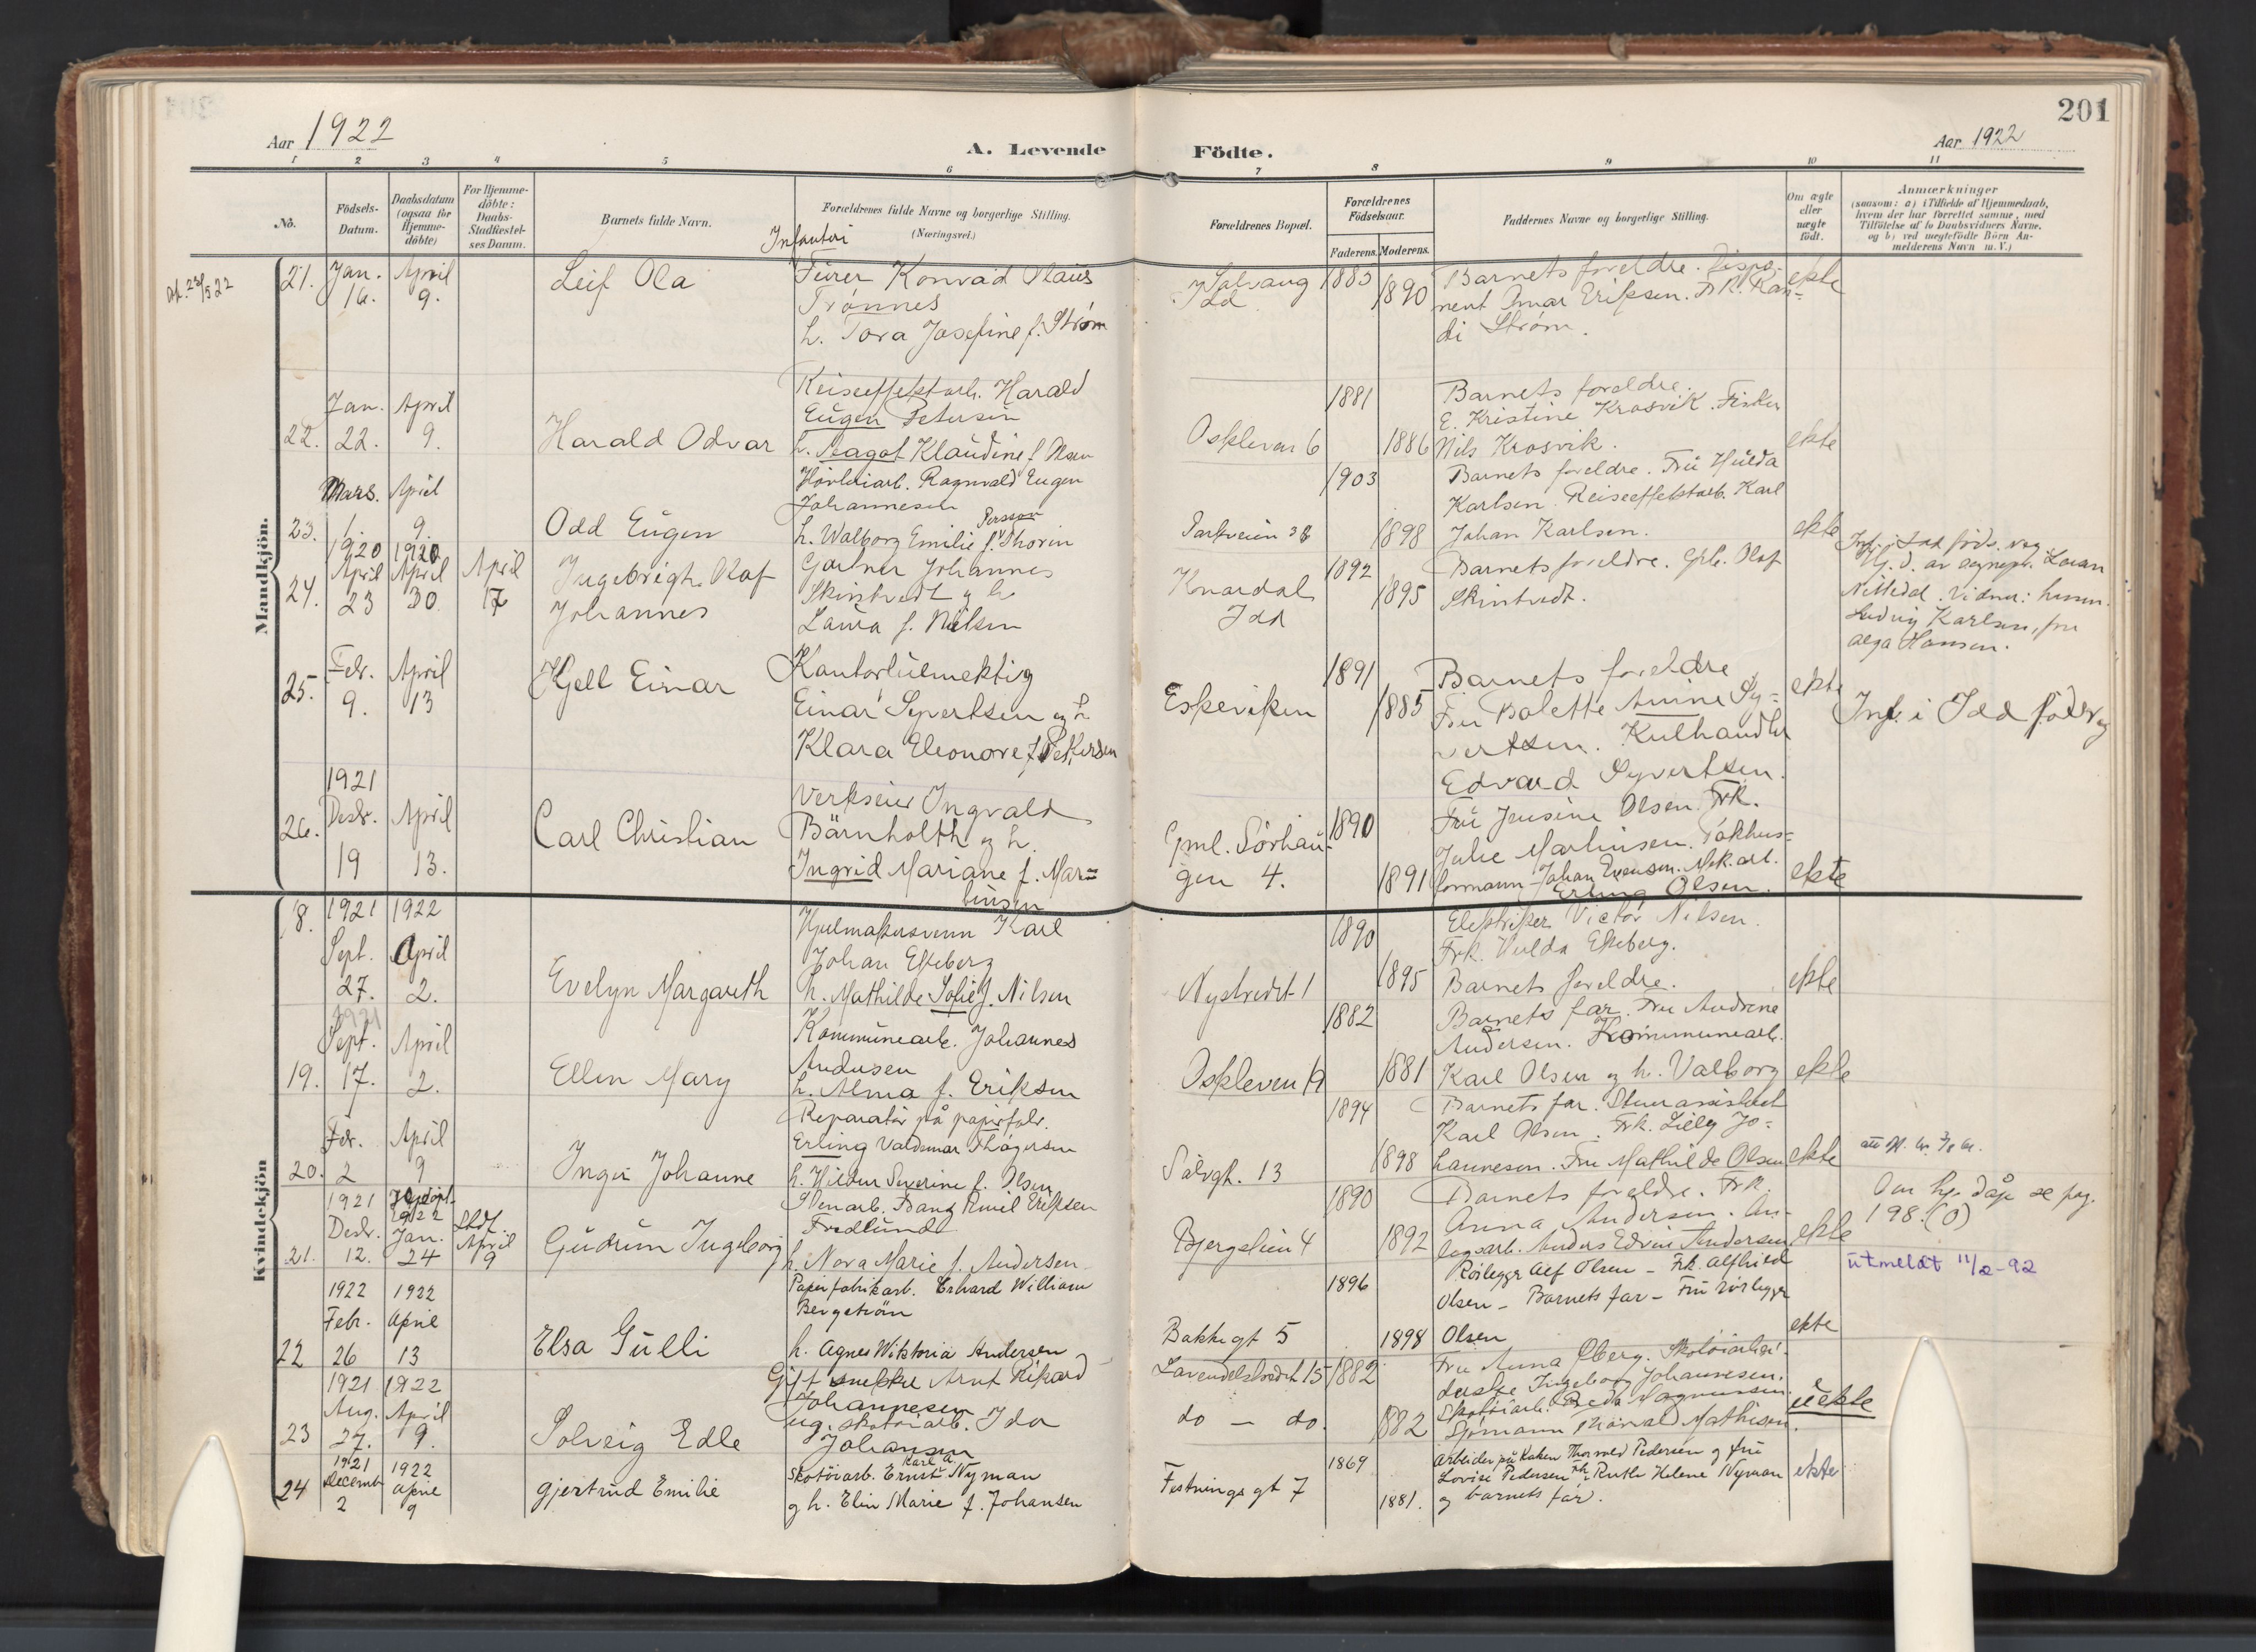 201
Aar 1922
A. Levende Födte.
Aar 1922
1 2 3 4 5 6 7 8 9 10 11
No.
Födsels-Datum.
Daabsdatum (ogsaa for Hjemme-döbte)
For Hjemme-döbte: Daabs-Stadfæstel-ses Datum.
Barnets fulde Navn.
Forældrenes fulde Navne og borgerlige Stilling.
(Næringsvei.)
Forældrenes Bopæl.
Forældrenes Födselsaar.
Faderens. Moderens.
Faddernes Navne og borgerlige Stilling.
Om ægte eller uægte födt.
Anmærkninger
(saasom: a) i Tilfælde af Hjemmedaab,
hvem der har forrettet samme, med
Tilföielse af to Daabsvidners Navne,
og b) ved uægtefödte Börn An-
melderens Navn m. V.)
Mandkjön.
21. Jan. 16. April 9.
Leif Ola
Infanteri
Fürer Konrad
Trønnes
h. Tora Josefine f. Strøm
Solvang
Idd
1883
1890
Barnets foreldre.
nent Omar Eriksen. Frk. Ran-
di Strøm.
ekte
22. Jan. 22. April 9.
Harald Odvar
Reiseeffektarb. Harald
Eugen Petersen
h. Aagot Klaudine f. Olsen
Oskleven 6
1881
1886
Barnets foreldre.
E. Kristine Krosvik. Fisker
Nils Krosvik.
ekte
23. Mars. 1. April 9.
Odd Eugen
Høvleriarb. Ragnvald Eugen
Johannesen
Persson
h. Walborg Emilie f. Thorin
Parkveien 38
1903
1898
Barnets foreldre. Fru Hulda
Karlsen. Reiseeffektarb. Karl
Johan Karlsen.
ekte
24. 1920 April 23 1920 April 30. April 17
Ingebrigh Olaf
Johannes
Gartner Johannes
Skintvedt g h
Laura f. Nilsen
Knardal
Idd
1892
1895
Barnets foreldre. Olaf
Skintvedt.
Inf. i Idd føds. reg.
Hj. d. av
Nittedal. Vidner:
Ludvig Karlsen, fru
Olga Hansen.
25. Febr. 9. April 13
Kjell Einar
Kontorfuldmektig
Einar Syvertsen og h
Klara Eleonore f. Pettersen
Eskeviken
1891
1885
Barnets foreldre
Fru Bolette Amine Sy-
vertsen. Kulhandler
Edvard Syvertsen.
ekte
Inf. i Idd fødereg
26. 1921 Desbr. 19 April 13.
Carl Christian
Verkseier Ingvald
Bärnholth og h.
Ingrid Mariane f. Mar-
tinsen
Gml. Sørhau-
gen 4.
1890
1891
Fru Jensine Olsen. Frk.
Julie Martinsen. Pakhus-
formann Johan Evensen. Mek. arb.
Erling Olsen.
ekte
Kvindekjön
18. 1921 Sept. 27. 1922 April 2.
Evelyn Margareth
Hjulmakersvenn Karl
Johan Ekeberg
h. Mathilde Sofie f. Nilsen
Nystredet 1
1890
1895
Elektriker Victor Nilsen.
Frk. Hulda Ekeberg.
Barnets foreldre.
ekte
19. 1921 Sept. 17. April 2.
Ellen Mary
Kommunearb. Johannes
Andersen
h. Alma f. Eriksen
Oskleven 19
1882
1881
Barnets far. Fru Andrine
Andersen. Kommunearb.
Karl Olsen og h. Valborg
ekte
20. Febr. 2 April 9
Inger Johanne
Reparatør på papirfabr.
Erling Valdemar Thøgersen
h. Hildur Severine f. Olsen
Sølvgt. 13
1894
1898
Barnets far. Stuerassistent
Karl Olsen. Frk. Lilly Jo-
hannesen. Fru Mathilde Olsen
ekte
21. 1921 Desbr. 12. Hjdøpt 1922 Jan. 24 Stdf. April 9
Gudrun Ingeborg
Stenarb. Bang Emil Eriksen
Fredlund
h. Nora Marie f. Andersen
Bjergslien 4
1890
1892
Barnets foreldre. Frk.
Anna Andersen. An-
legsarb. Anders Edvin Andersen
ekte
Om hj. dåp se pag.
198. (0)
utmeldt 11/2-92
22 1922 Febr. 26 1922 April 13
Elsa Gulli
Papirfabrikarb. Erhard William
Bergström
h. Agnes Wiktoria Andersen
Bakkegt 5
1896
1898
Rørlegger Alf Olsen - Frk. Alfhild
Olsen - Barnets far - Fru rørlegger
Olsen
ekte
23 1921 Aug. 27. 1922 April 9.
Solveig Edle
Gift snekker Arnt Rikard
Johannesen
ug. skotøiarb. Ida
Johansen
Lavendelstredet 15
do - do.
1882
1882
Fru Anna Øberg. Skotøiarbei-
derske Ingeborg Johannesen.
Skotøiarb. Magnussen.
Sjømann Mathisen.
uekte
24 1921 Decembr 2 1922 April 9
Gjertrud Emilie
Karl A.
Skotøiarb. Ernst Nyman
g h. Elin Marie f. Johansen
Festnings gt 7
1869
1881.
Arbeider på Kaken Thorvald Pedersen og fru
Lovise Pedersen Frk. Ruth Helene Nyman
og barnets far.
ekte